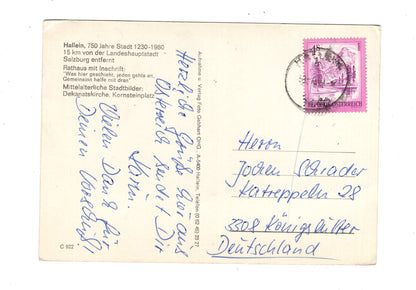 Hallein, 750 Jahre Stadt 1230-1980
15 km von der Landeshauptstadt
Salzburg entfernt
Rathaus mit Inschrift:
"Was hier geschieht, jeden gehts an,
Gemeinsinn helfe mit dran"
Mittelalterliche Stadtbilder:
Dekanatskirche, Kornsteinplatz
C 922
Herzliche Grüße
Österreich sendet Dir
Karin.
Vielen Dank für
Deinen Vorschlag!
Aufnahme u. Verlag Foto Gebhart OHG, A-5400 Hallein, Telefon
HALLEIN
REPUBLIK ÖSTERREICH
Herrn
Jochen Schrader
Katreppeln 28
3308 Königslutter
Deutschland